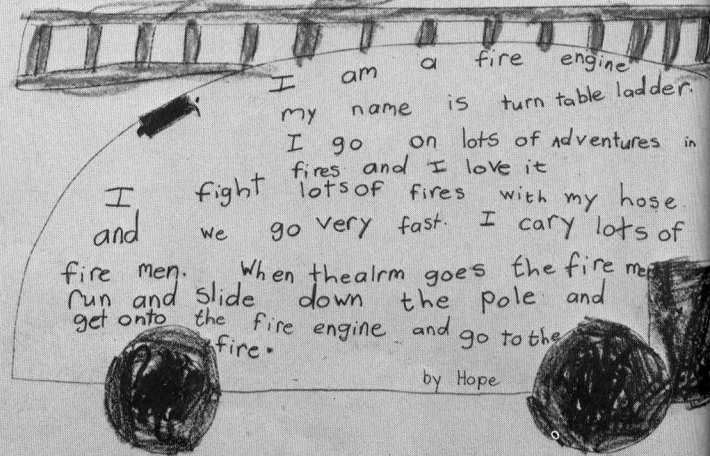 I am a fire engine
my name is turn table ladder.
I go on lots of Adventures in
fires and I love it
I fight lots of fires with my hose.
and we go very fast. I cary lots of
fire men. When thealrm goes the fire men
run and slide down the pole and
get onto the fire engine and go to the
fire.
by Hope